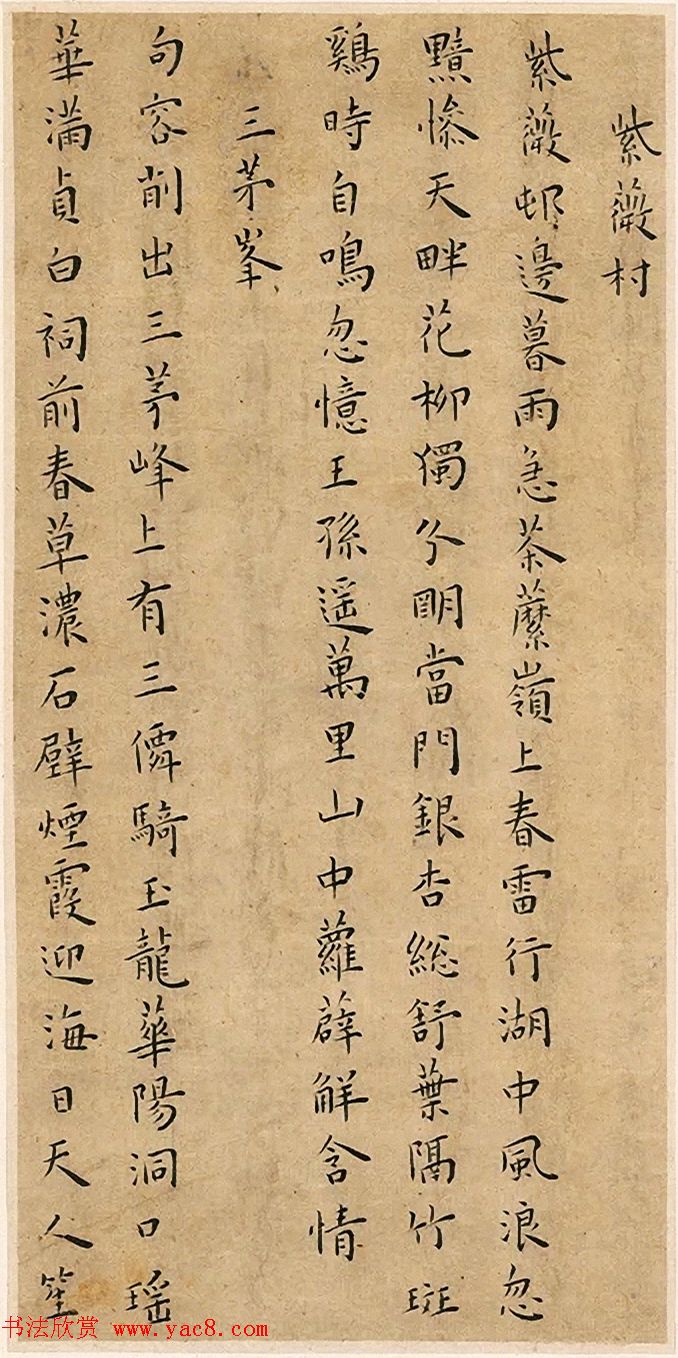 紫薇村
紫薇邨邊暮雨急茶蘪嶺上春雷行湖中風浪忽
黯慘天畔花柳獨分明當門銀杏總舒葉隔竹斑
鷄時自鳴忽憶王孫遥萬里山中蘿薜解含情
三茅峯
句容削出三茅峰上有三僊騎玉龍華陽洞口瑶
華滿貞白祠前春草濃石壁煙霞迎海日天人笙
书法欣赏 www.yac8.com